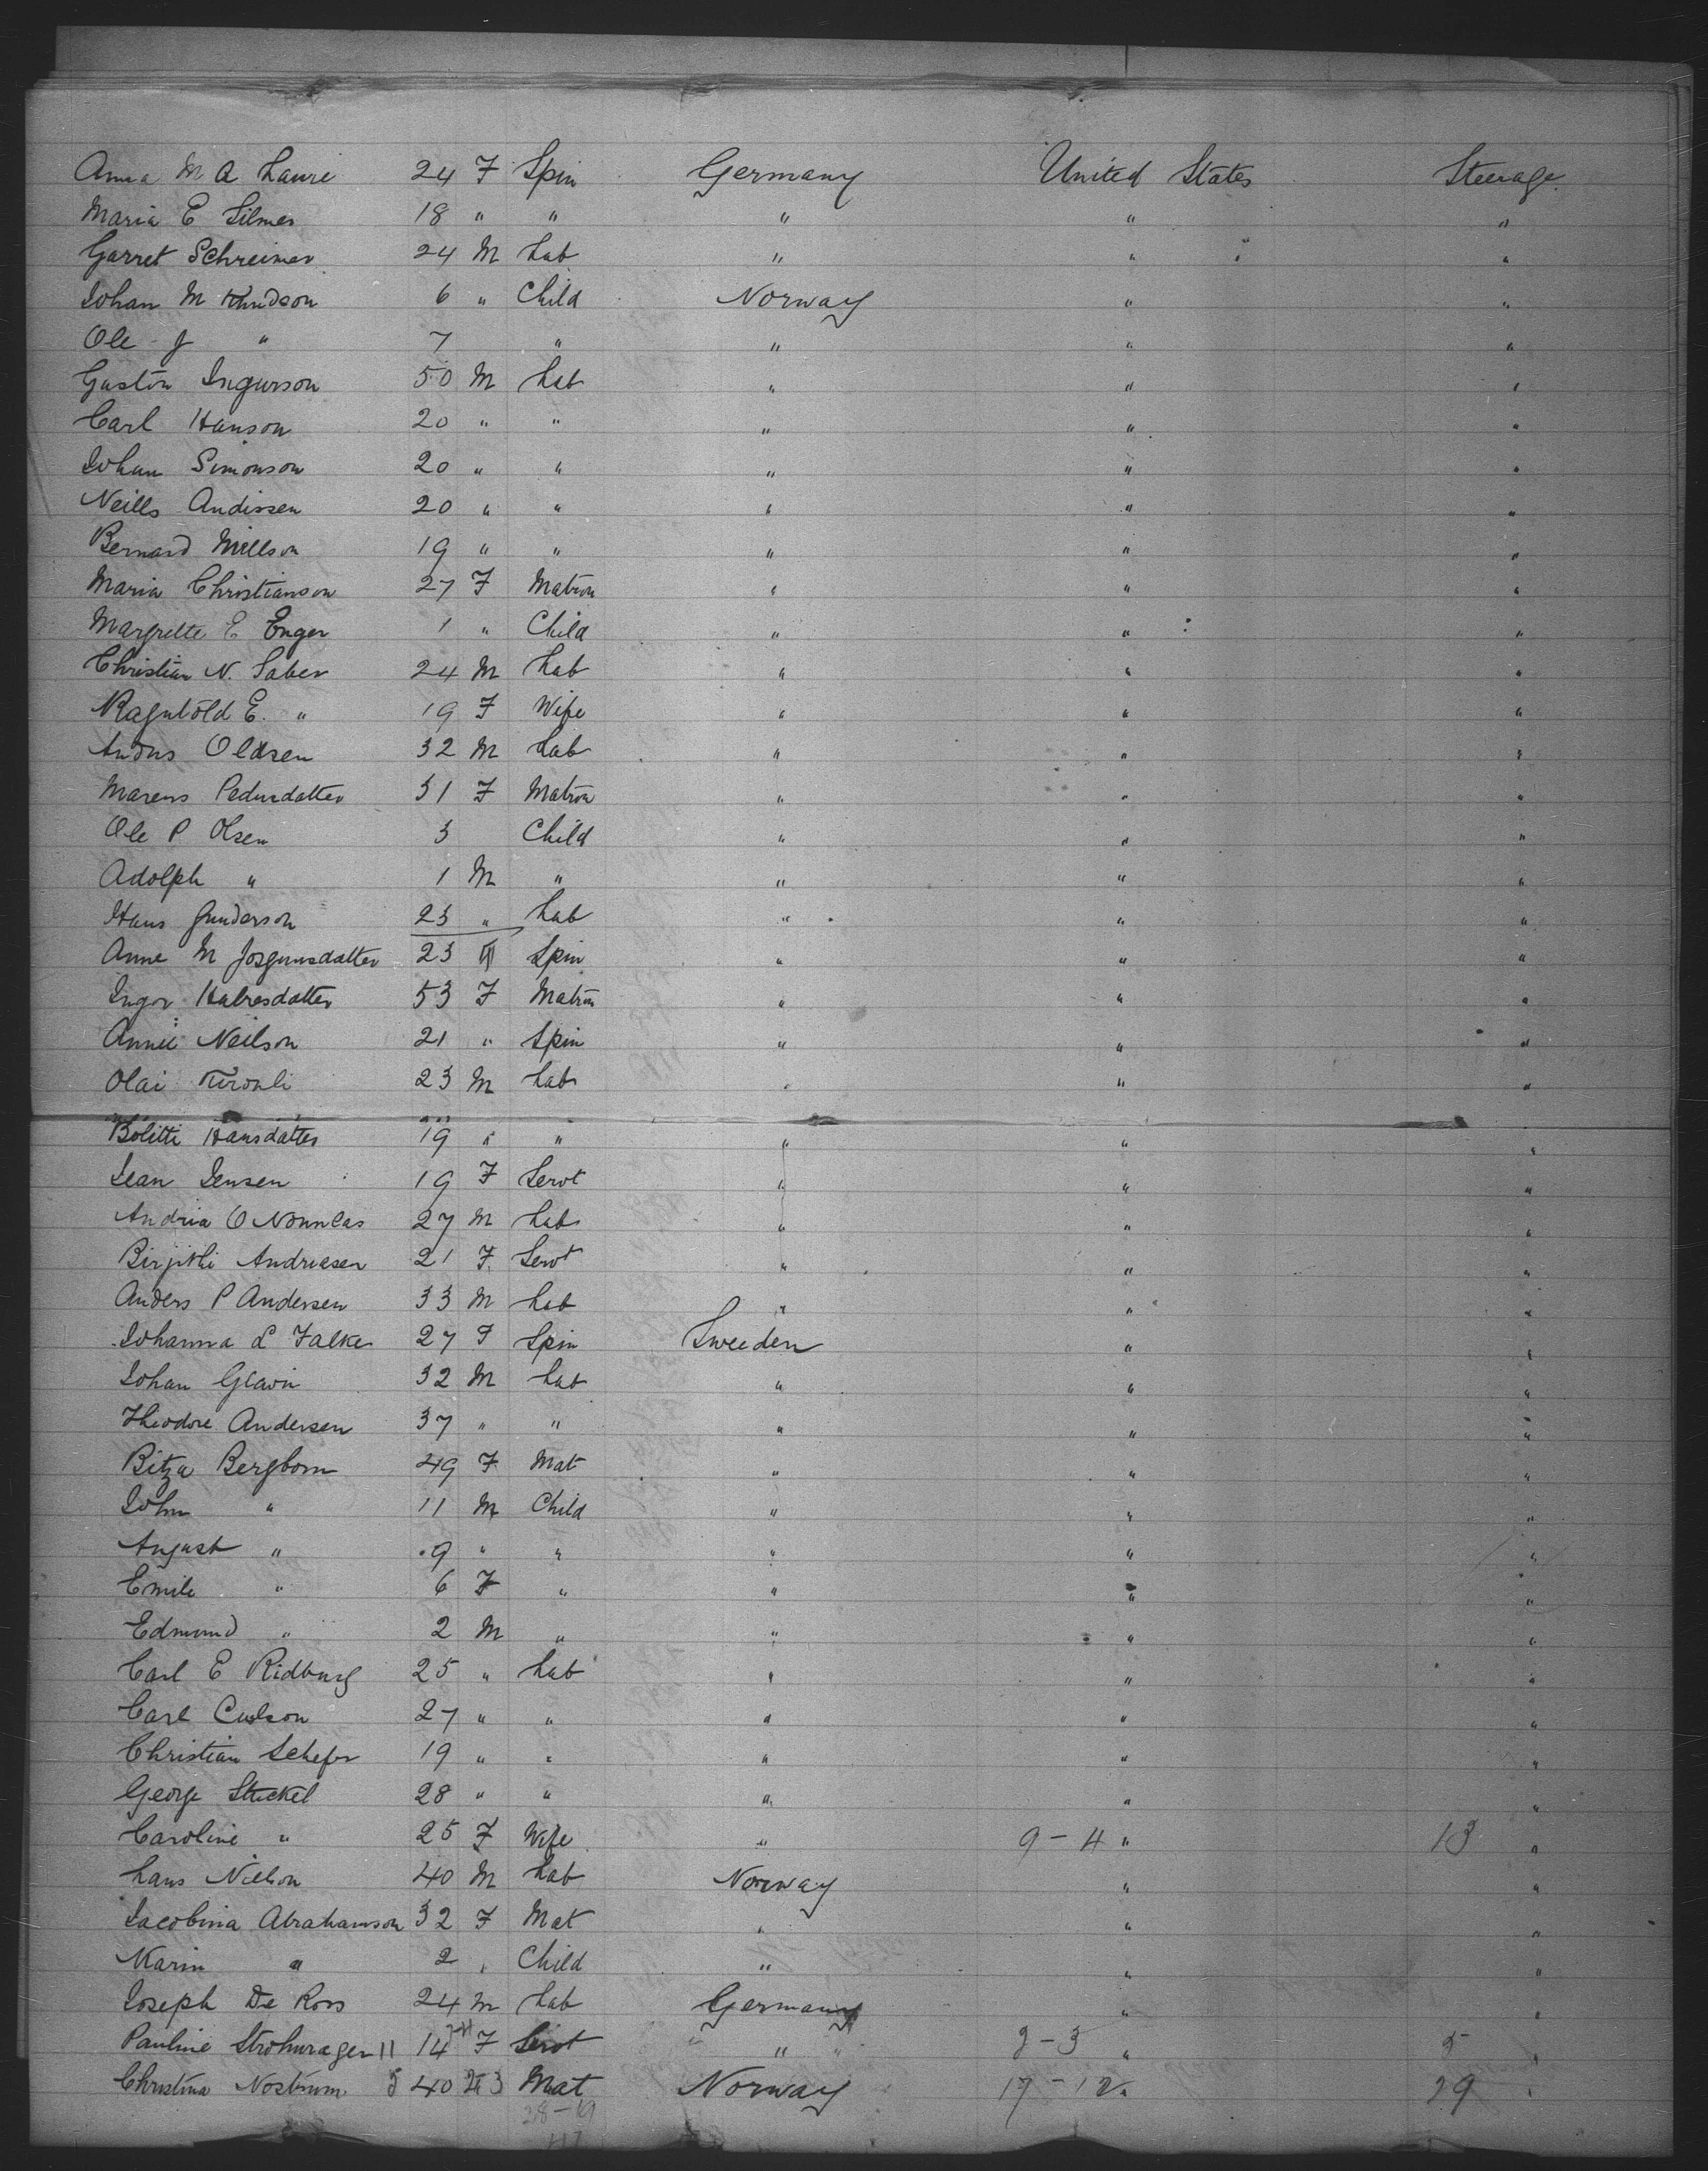 Anna M A Laure 24 F Spin Germany United States Steerage
Maria E Silmer 18 " " " " "
Garret Schreiner 24 M Lab " " "
Johan M Knudson 6 " Child Norway " "
Ole J " 7 " " " "
Gustav Ingurson 50 M Lab " " "
Carl Hanson 20 " " " " "
Johan Simonson 20 " " " " "
Neills Andissen 20 " " " " "
Bernard Millson 19 " " " " "
Maria Christianson 27 F Matron " " "
Margrette E Enger 1 " Child " " "
Christian N. Saber 24 M Lab " " "
Ragnlold E. " 19 F Wife " " "
Andrus Oldsen 32 M Lab " " "
Marens Pedursdatter 31 F Matron " " "
Ole P Olsen 3 Child " " "
Adolph " 1 M " " " "
Hans Gunderson 23 " Lab " " "
Anne M Jorgunsdatter 23 F Spin " " "
Ingor Halresdatter 53 F Matron " " "
Annie Neilson 21 " Spin " " "
Olai 23 M Lab " " "
Bolitti Hansdatter 19 " " " " "
Jean Jensen 19 F Servt " " "
Andria O Nounlas 27 M Lab " " "
Birjithi Andriesen 21 F. Servt " " "
Anders P Andersen 33 M Lab " " "
Johanna L Falke 27 F Spin Sweeden " "
Johan Glavin 32 M Lab " " "
Theodore Andersen 37 " " " " "
Bitza Bergbom 49 F Mat " " "
John " 11 M Child " " "
August " 9 " " " " "
Emili " 6 F " " " "
Edmund " 2 M " " " "
Carl E Ridburg 25 " Lab " " "
Carl Culson 27 " " " " "
Christian Schefer 19 " " " " "
George Stuckel 28 " " " " "
Caroline " 25 F Wife " 9-4 " 13 "
Lars Nielson 40 M Lab Norway " "
Jacobina Abrahamson 32 F Mat " " "
Karin " 2 " Child " " "
Joseph De Ross 24 M Lab Germany " "
Pauline Strohmrager 11 14 F Servt " 2-3 " 5 "
Christina Nostrum 5 40 23 Mat Norway 17-12 " 29 "
28-19
47